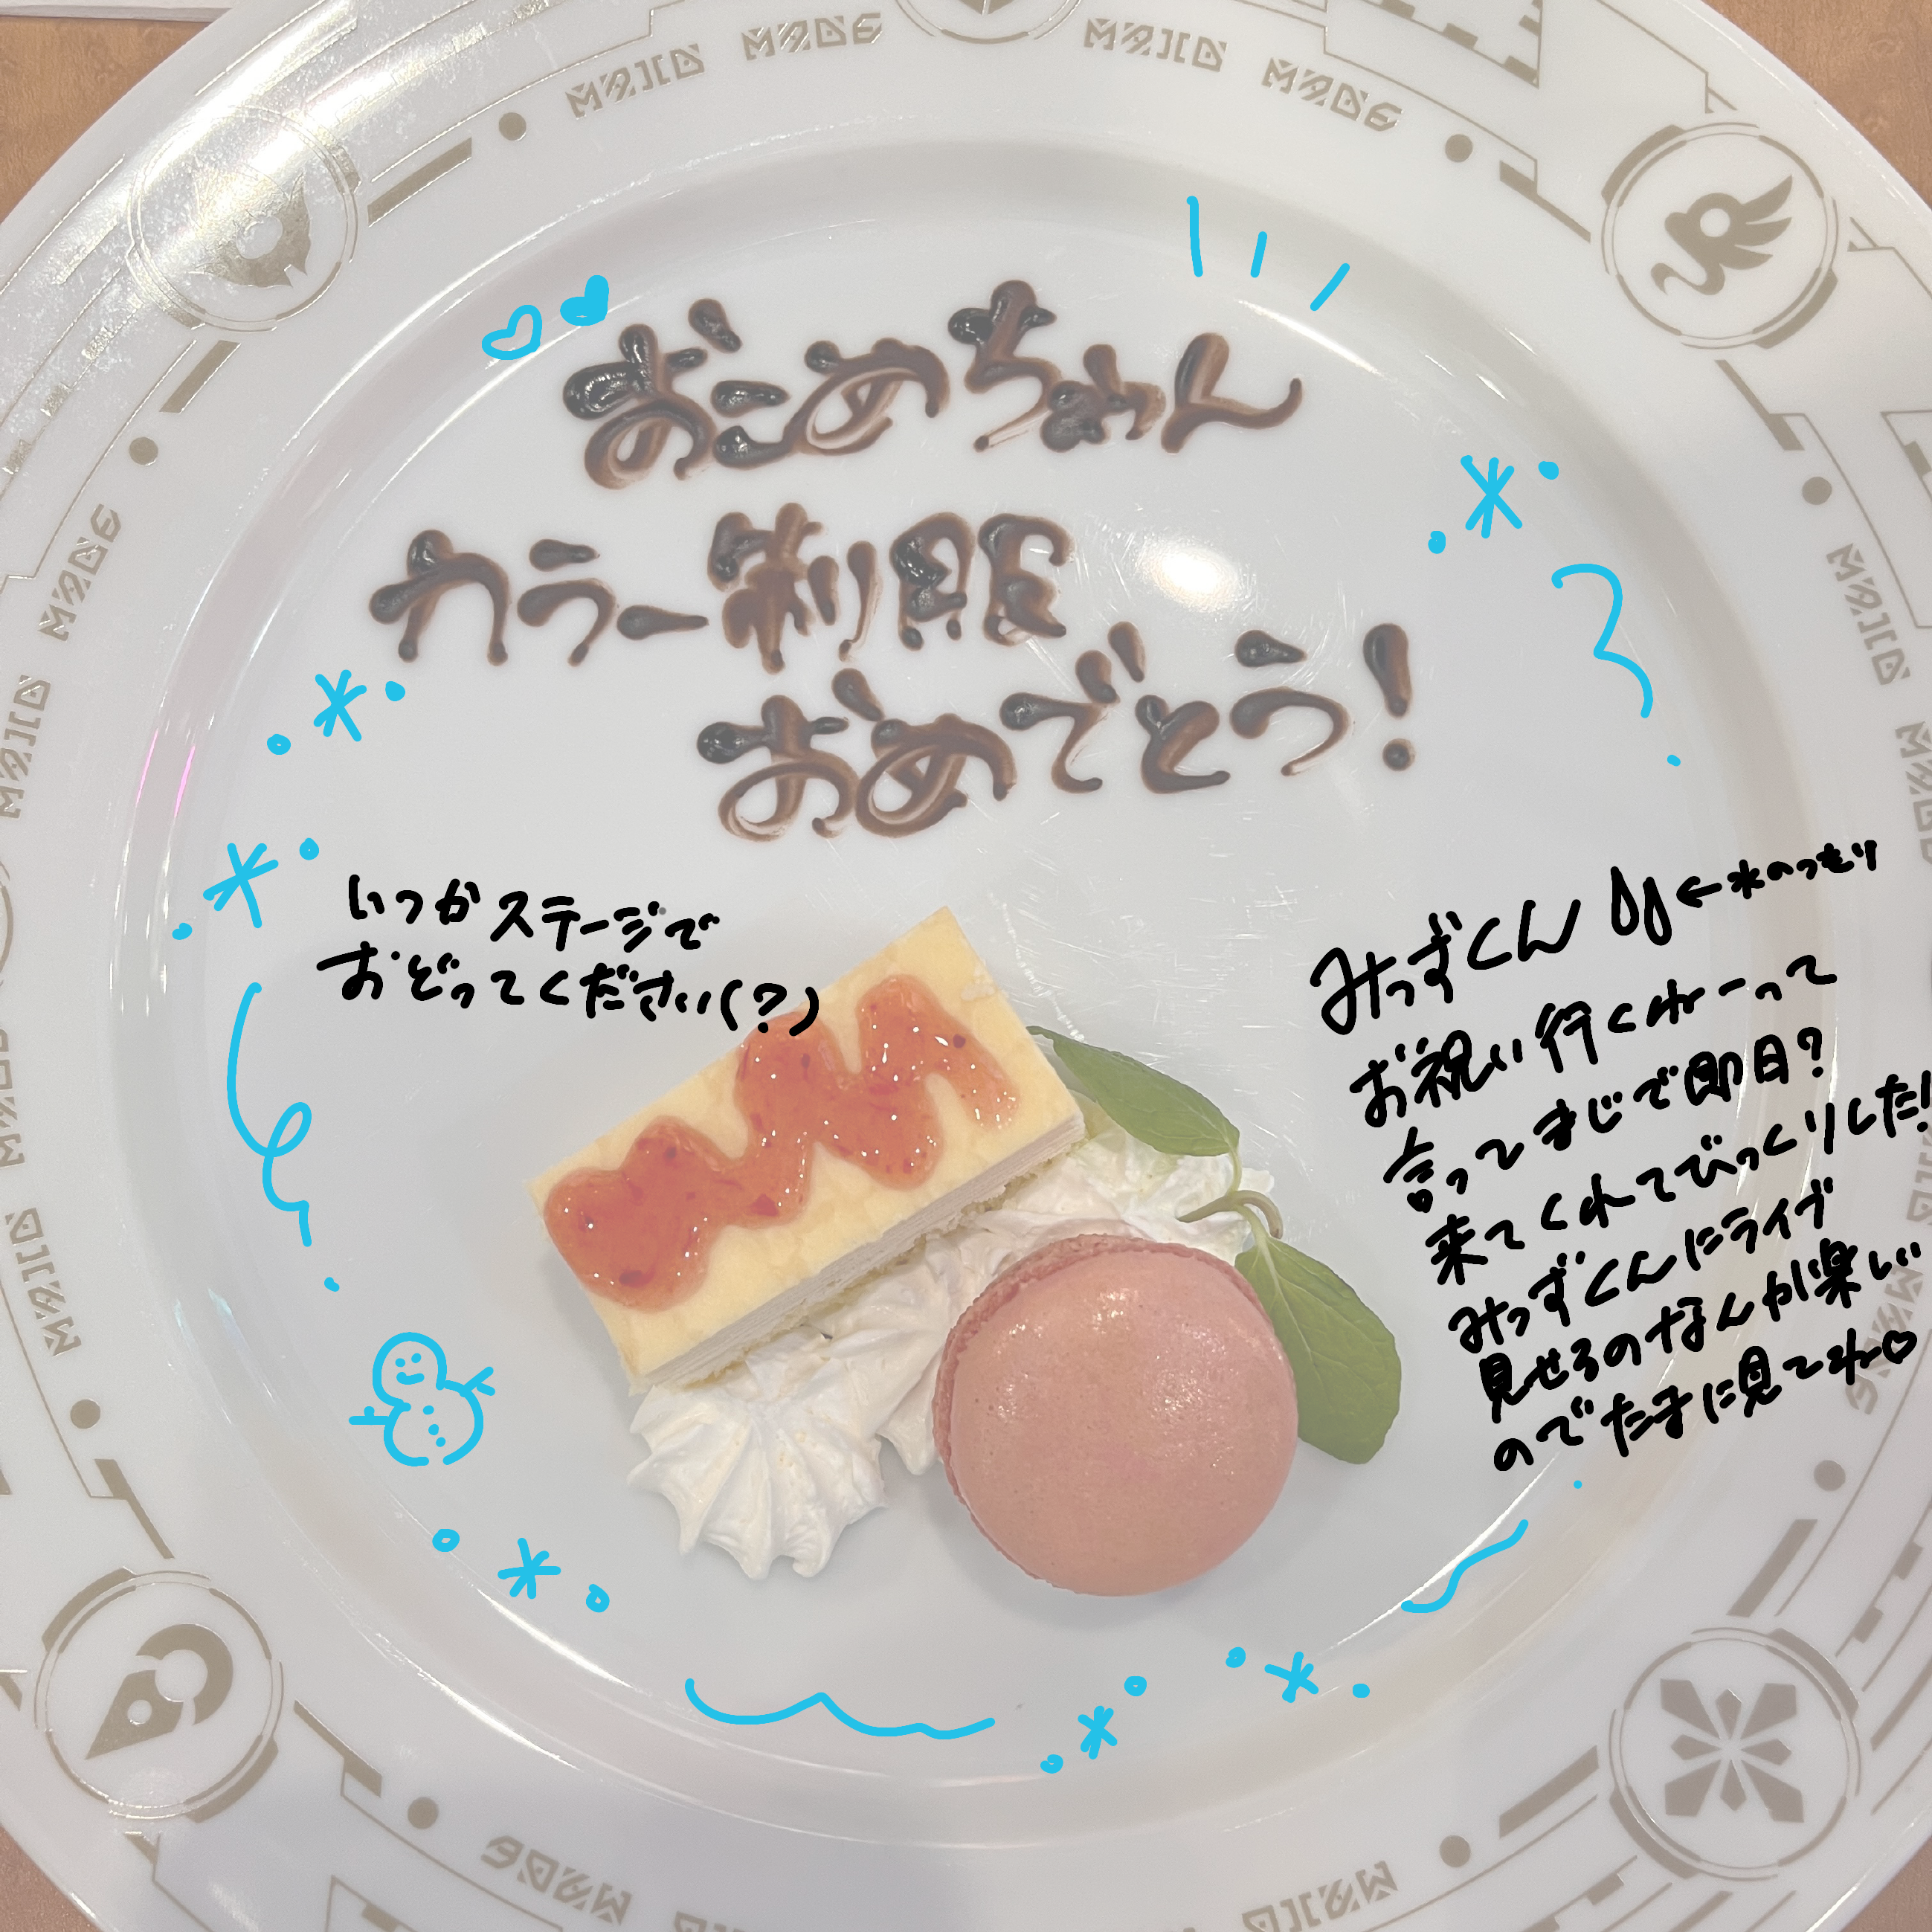 MAID MADE
MAID MADE
おこめちゃん
カラー制服
おめでとう!
いつかステージで
おどってください(?)
みっずくん ←水のつもり
お祝い行くわーって
言ってまじで即日?
来てくれてびっくりした!
みっずくんにライブ
見せるのなんか楽しい
のでたまに見てね♡
MAID MADE
MAID MADE
MAID MADE
MAID
MADE
MAID
MADE
MAID